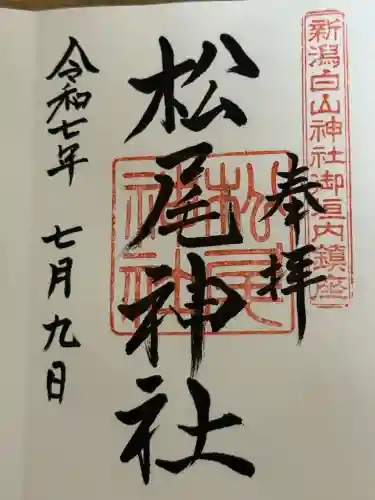 新潟白山神社御垣内鎮座
奉拝
松尾神社
松尾神社
令和七年 七月九日